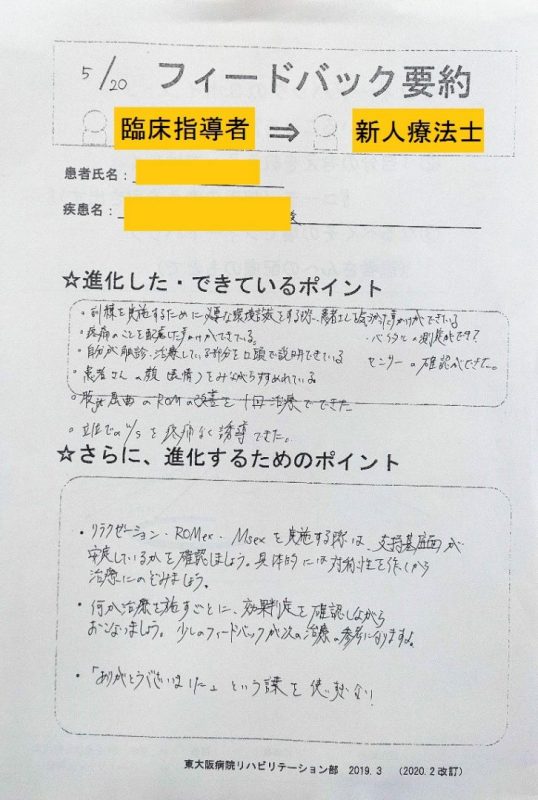 5/20 フィードバック要約
臨床指導者 ⇒ 新人療法士
患者氏名:
疾患名:
☆進化した・できているポイント
・ を実施するために必要な環境設定をする際、患者さんを気づかった声かけができている
・疼痛のことを配慮した声かけができている。
・バイタルの測定ができてる
・自分が触診、治療している部分を口頭で説明できている
センサーの確認ができた。
・患者さんの顔(表情)をみながらすすめれている
・股jt屈曲のROMの改善を1回治療でできた
・立位でのw/sを疼痛なく誘導できた。
☆さらに、進化するためのポイント
・リラクゼーション・ROMex・Msexを実施する際は、支持基底面が
安定しているかを確認しましょう。具体的には対称性を作ってから
治療にのぞみましょう。
・何か治療を施すごとに、効果判定を確認しながら
おこないましょう。少しのフィードバックが次の治療の参考になりますよ。
・「ありがとうございました」という言葉を使い
東大阪病院リハビリテーション部 2019.3 (2020.2改訂)